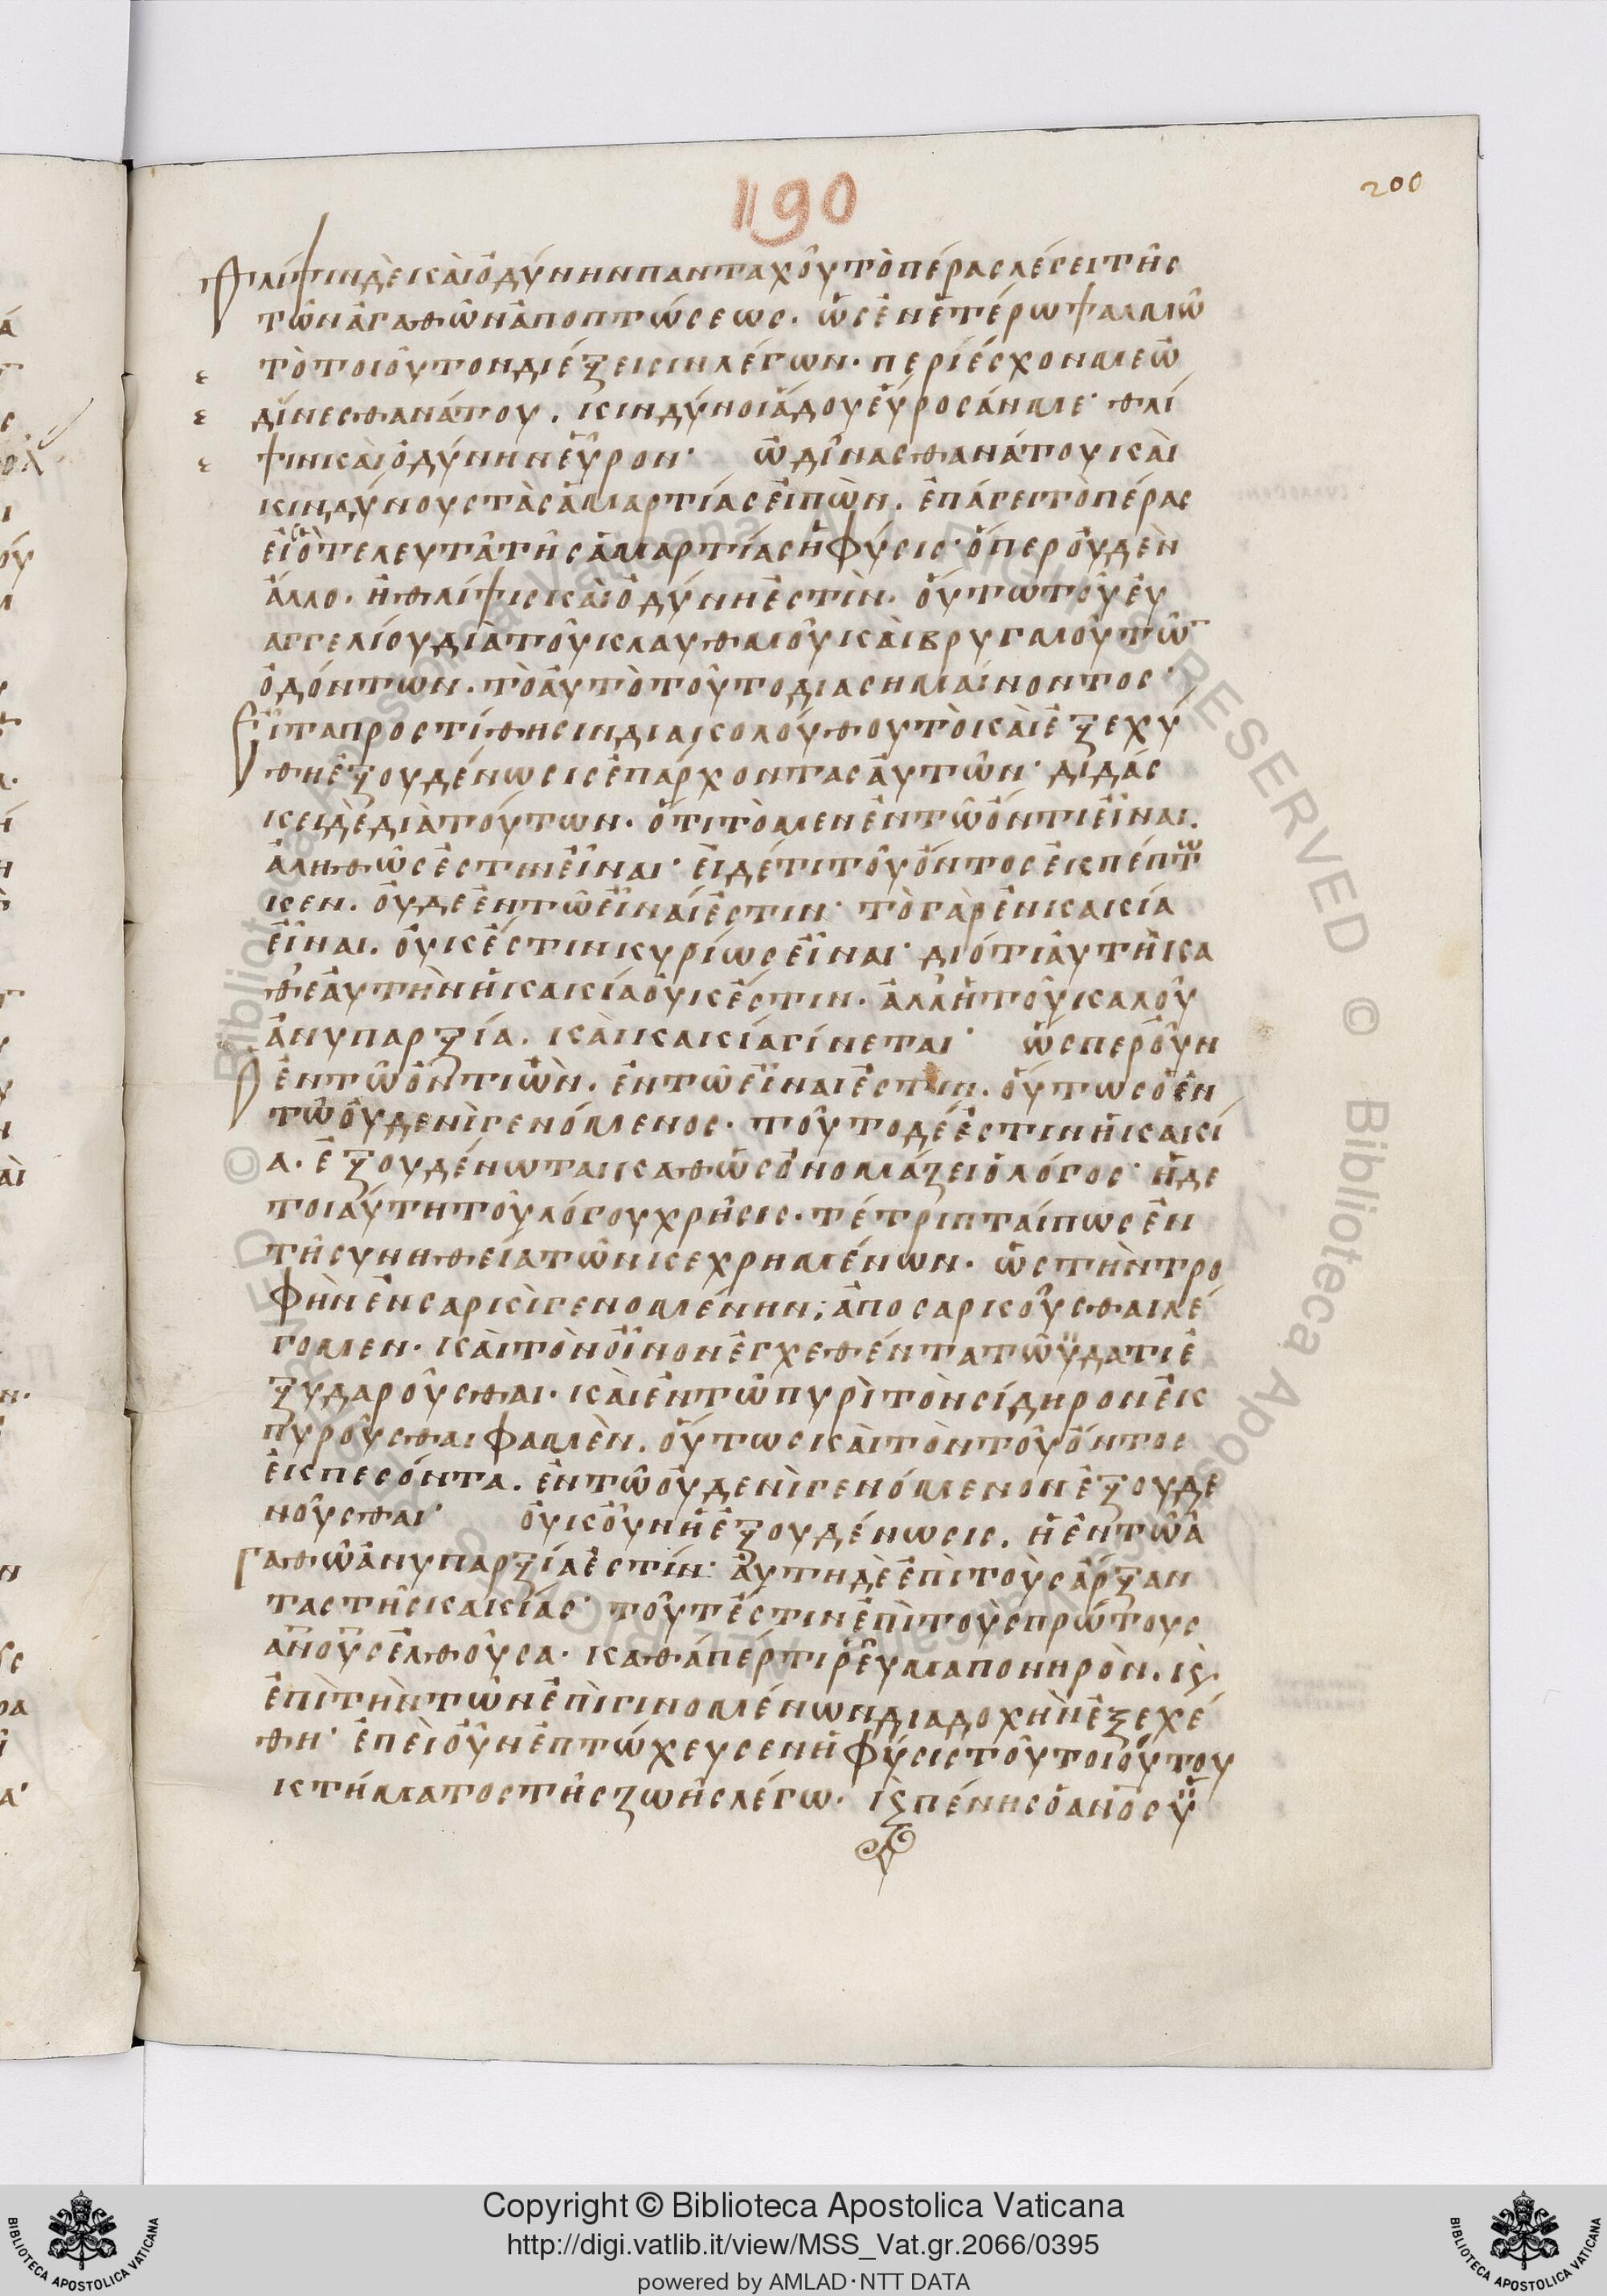 190
200
θλίψιν δὲ καὶ ὀδύνην πανταχοῦ τὸ πέρας λέγει τῆς
τῶν ἀγαθῶν ἀποπτώσεως· ὡς ἐν ἑτέρω ψαλμῶ
τὸ τοιοῦτον διέξεισιν λέγων· περιέσχον με ὠ
δῖνες θανάτου. κινδύνοι ἅδου εὕροσάν με· θλί
ψιν καὶ ὀδύνην εὗρον· ὠδῖνας θανάτου καὶ
κινδύνους τὰς ἁμαρτίας εἰπὼν. ἐπάγει τὸ πέρας
εἰς ὃ τελευτᾶ τῆς ἁμαρτίας ἡ φύσις· ὅπερ οὐδὲν
ἄλλο. ἢ θλίψις καὶ ὀδύνη ἐστὶν. οὕτω τοῦ εὐ
αγγελίου διὰ τοῦ κλαυθμοῦ καὶ βρυγμοῦ τῶ̅
ὀδόντων. τὸ αὐτὸ τοῦτο διασημαίνοντος·
Εἶτα προστίθησιν δι ακολούθου τὸ καὶ ἐξεχύ
θη ἐξουδένωσις ἐπ άρχοντας αὐτῶν· διδάσ
κει δὲ διὰ τούτων. ὅτι τὸ μεν ἐν τῶ ὄντι εἶναι.
ἀληθῶς ἐστιν εἶναι· εἰ δέ τι τοῦ ὄντος ἐκπέπτω
κεν. οὐδε ἐν τῶ εἶναί ἐστιν· τὸ γὰρ ἐν κακία
εἶναι. οὐκ έστιν κυρίως εἶναι· διότι αὐτὴ κα
θ ἑαυτὴν ἡ κακία οὐκ ἔστιν. ἀλλ ἡ τοῦ καλοῦ
ἀνυπαρξία. καὶ κακία γίνεται· ὥσπερ οὖν
ὁ ἐν τῶ ὄντι ὢν. ἐν τῶ εἶναι ἐστιν. οὕτως ὁ ἐν
τῶ οὐδενὶ γενόμενος. τοῦτο δέ ἐστιν ἡ κακί
α. ἐξουδένωται καθὼς ὀνομάζει ὁ λόγος· ἡ δε
τοιαύτη τοῦ λόγου χρῆσις. τέτριπταί πως ἐν
τῆ συνηθεία τῶν κεχρημένων. ὡς τὴν τρο
φὴν ἐν σαρκὶ γενομένην; ἀποσαρκοῦσθαι λέ
γομεν. καὶ τὸν οἶνον ἐγχεθέντα τῶ ὕδατι ἐ
ξυδαροῦσθαι. καὶ ἐν τῶ πυρὶ τὸν σίδηρον ἐκ
πυροῦσθαι φαμὲν. οὕτως καὶ τὸν τοῦ ὄντος
ἐκπεσόντα. ἐν τῶ οὐδενὶ γενόμενον ἐξουδε
νοῦσθαι· οὐκοῦν ἡ ἐξουδένωσις. ἡ ἐν τῶ ἀ
γαθῶ ἀνυπαρξία ἐστίν· αὕτη δὲ ἐπὶ τοὺς ἄρξαν
τας τῆς κακίας· τοῦτ έστιν ἐπὶ τοὺς πρώτους
α̅ν̅ους ἐλθοῦσα. καθάπέρ τι ῥεῦμα πονηρὸν. κ̀
ἐπὶ τὴν τῶν ἐπιγινομένων διαδοχὴν ἐξεχέ
θη· ἐπεὶ οὖν ἐπτώχευσεν ἡ φύσις τοῦ τοιούτου
κτήματος τῆς ζωῆς λέγω. κ̀ πένης ὁ α̅ν̅ος ὑ
Copyright © Biblioteca Apostolica Vaticana
http://digi.vatlib.it/view/MSS_Vat.gr.2066/0395
powered by AMLAD·NTT DATA